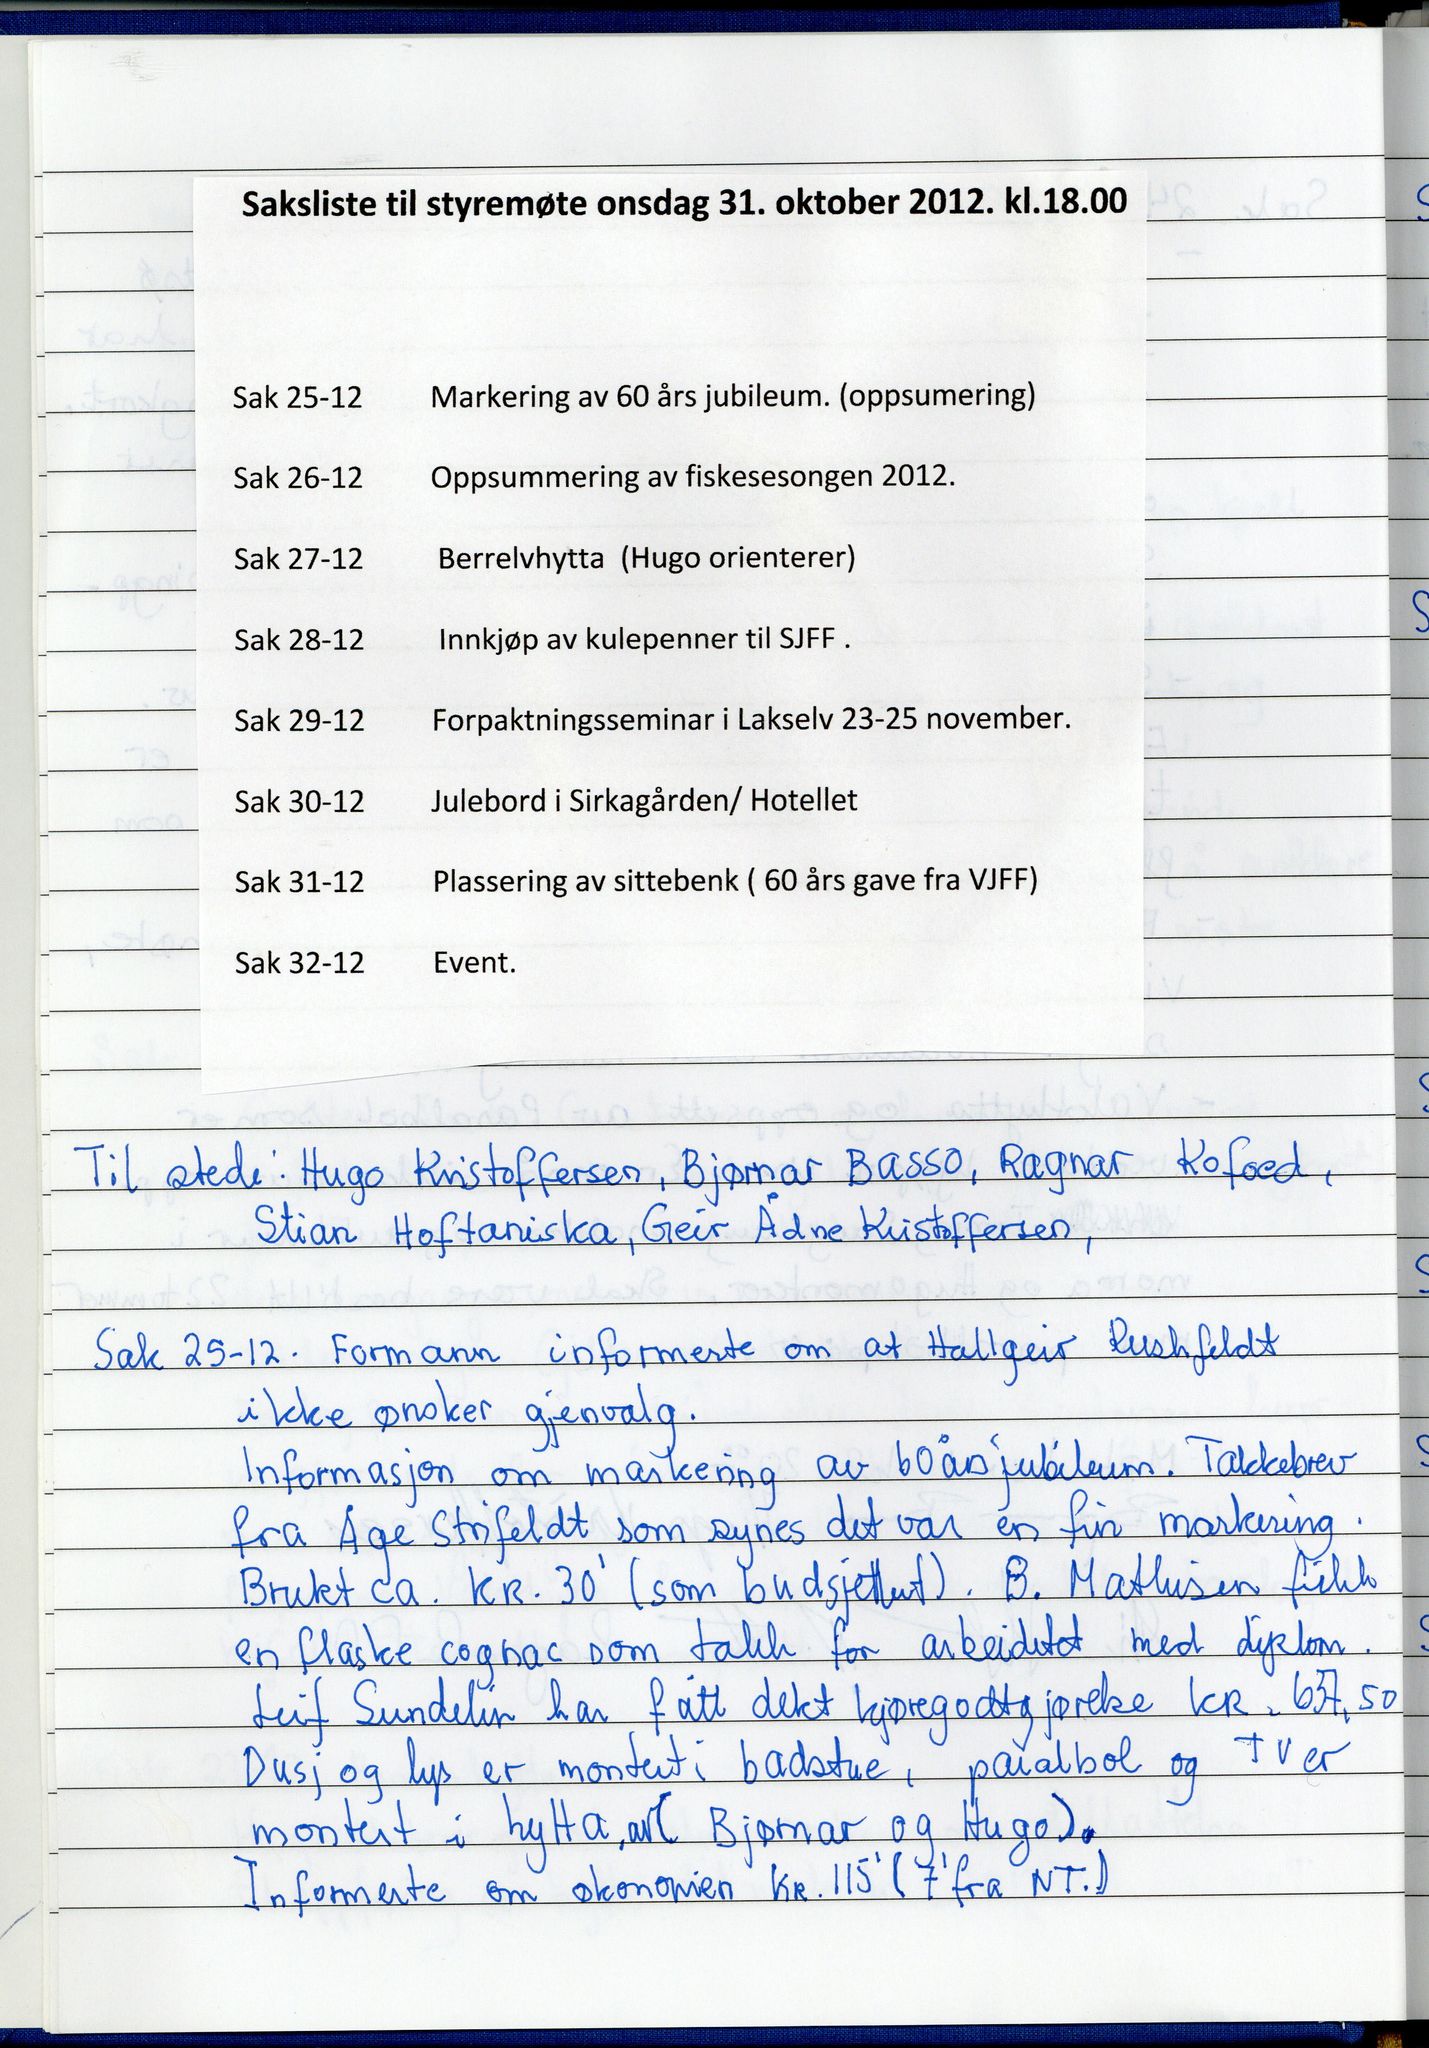 Saksliste til styremøte onsdag 31. oktober 2012. kl.18.00
Sak 25-12 Markering av 60 års jubileum. (oppsumering)
Sak 26-12 Oppsummering av fiskesesongen 2012.
Sak 27-12 Berrelvhytta (Hugo orienterer)
Sak 28-12 Innkjøp av kulepenner til SJFF .
Sak 29-12 Forpaktningsseminar i Lakselv 23-25 november.
Sak 30-12 Julebord i Sirkagården/ Hotellet
Sak 31-12 Plassering av sittebenk ( 60 års gave fra VJFF)
Sak 32-12 Event.
Til stede: Hugo Kristoffersen, Bjørnar Basso, Ragnar Kofoed,
Stian Hoftaniska, Geir Ådne Kristoffersen,
Sak 25-12. Formann informerte om at Hallgeir Rushfeldt
ikke ønsker gjenvalg.
Informasjon om markering av 60års jubileum. Takkebrev
fra Åge Strifeldt som synes det var en fin markering.
Brukt ca. KR. 30' (som budsjettert). B. Mathisen fikk
en flaske cognac som takk for arbeidet med diplom.
Leif Sundelin har fått dekt kjøregodtgjørelse KR. 637,50
Dusj og lys er montert i badstue, paralbol og TV er
montert i hytta, av( Bjørnar og Hugo).
Informerte om økonomien KR. 115' (7' fra NT.)